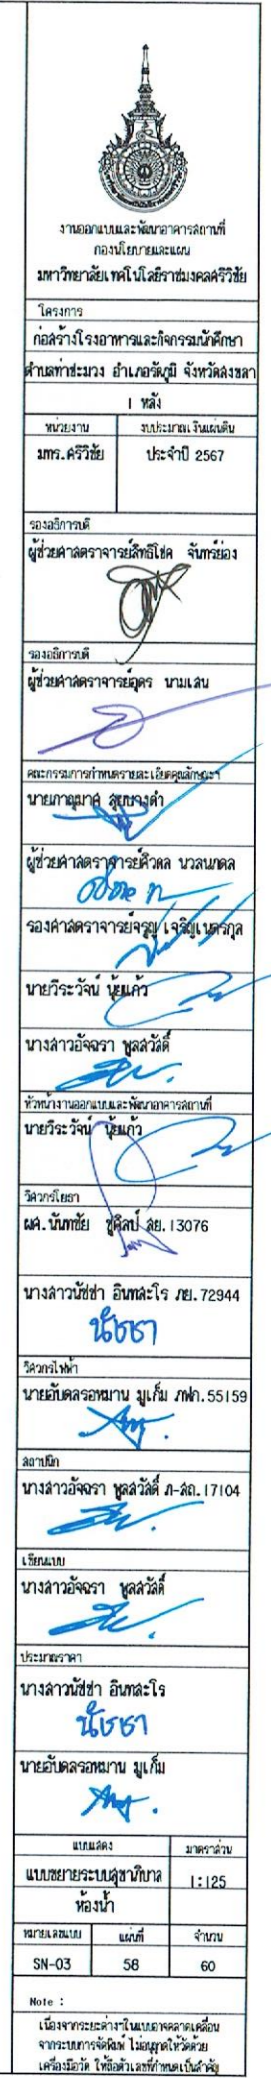 งานออกแบบและพัฒนาอาคารสถานที่
กองนโยบายและแผน
มหาวิทยาลัยเทคโนโลยีราชมงคลศรีวิชัย
โครงการ
ก่อสร้างโรงอาหารและกิจกรรมนักศึกษา
ตำบลท่าชะมวง อำเภอรัตภูมิ จังหวัดสงขลา
1 หลัง
หน่วยงาน งบประมาณเงินแผ่นดิน
มทร.ศรีวิชัย ประจำปี 2567
รองอธิการบดี
ผู้ช่วยศาสตราจารย์สิทธิโชค จันทร์ย่อง
รองอธิการบดี
ผู้ช่วยศาสตราจารย์อุดร นามเสน
คณะกรรมการกำหนดรายละเอียดคุณลักษณะฯ
นายภาณุมาศ สุยบางดำ
ผู้ช่วยศาสตราจารย์ศิวดล นวลนภดล
รองศาสตราจารย์จรูญ เจริญเนตรกุล
นายวีระวัจน์ นุ้ยแก้ว
นางสาวอัจฉรา พูลสวัสดิ์
หัวหน้างานออกแบบและพัฒนาอาคารสถานที่
นายวีระวัจน์ นุ้ยแก้ว
วิศวกรโยธา
ผศ.นันทชัย ชูศิลป์ สย.13076
นางสาวนัชชา อินทสะโร ภย.72944
นัชชา
วิศวกรไฟฟ้า
นายอับดลรอหมาน มูเก็ม ภฟก.55159
สถาปนิก
นางสาวอัจฉรา พูลสวัสดิ์ ภ-สถ.17104
เขียนแบบ
นางสาวอัจฉรา พูลสวัสดิ์
ประมาณราคา
นางสาวนัชชา อินทสะโร
นัชชา
นายอับดลรอหมาน มูเก็ม
แบบแสดง มาตราส่วน
แบบขยายระบบสุขาภิบาล 1:125
ห้องน้ำ
หมายเลขแบบ แผ่นที่ จำนวน
SN-03 58 60
Note :
เนื่องจากระยะต่างๆในแบบอาจคลาดเคลื่อน
จากระบบการจัดพิมพ์ ไม่อนุญาตให้วัดด้วย
เครื่องมือวัด ให้ถือตัวเลขที่กำหนดเป็นสำคัญ